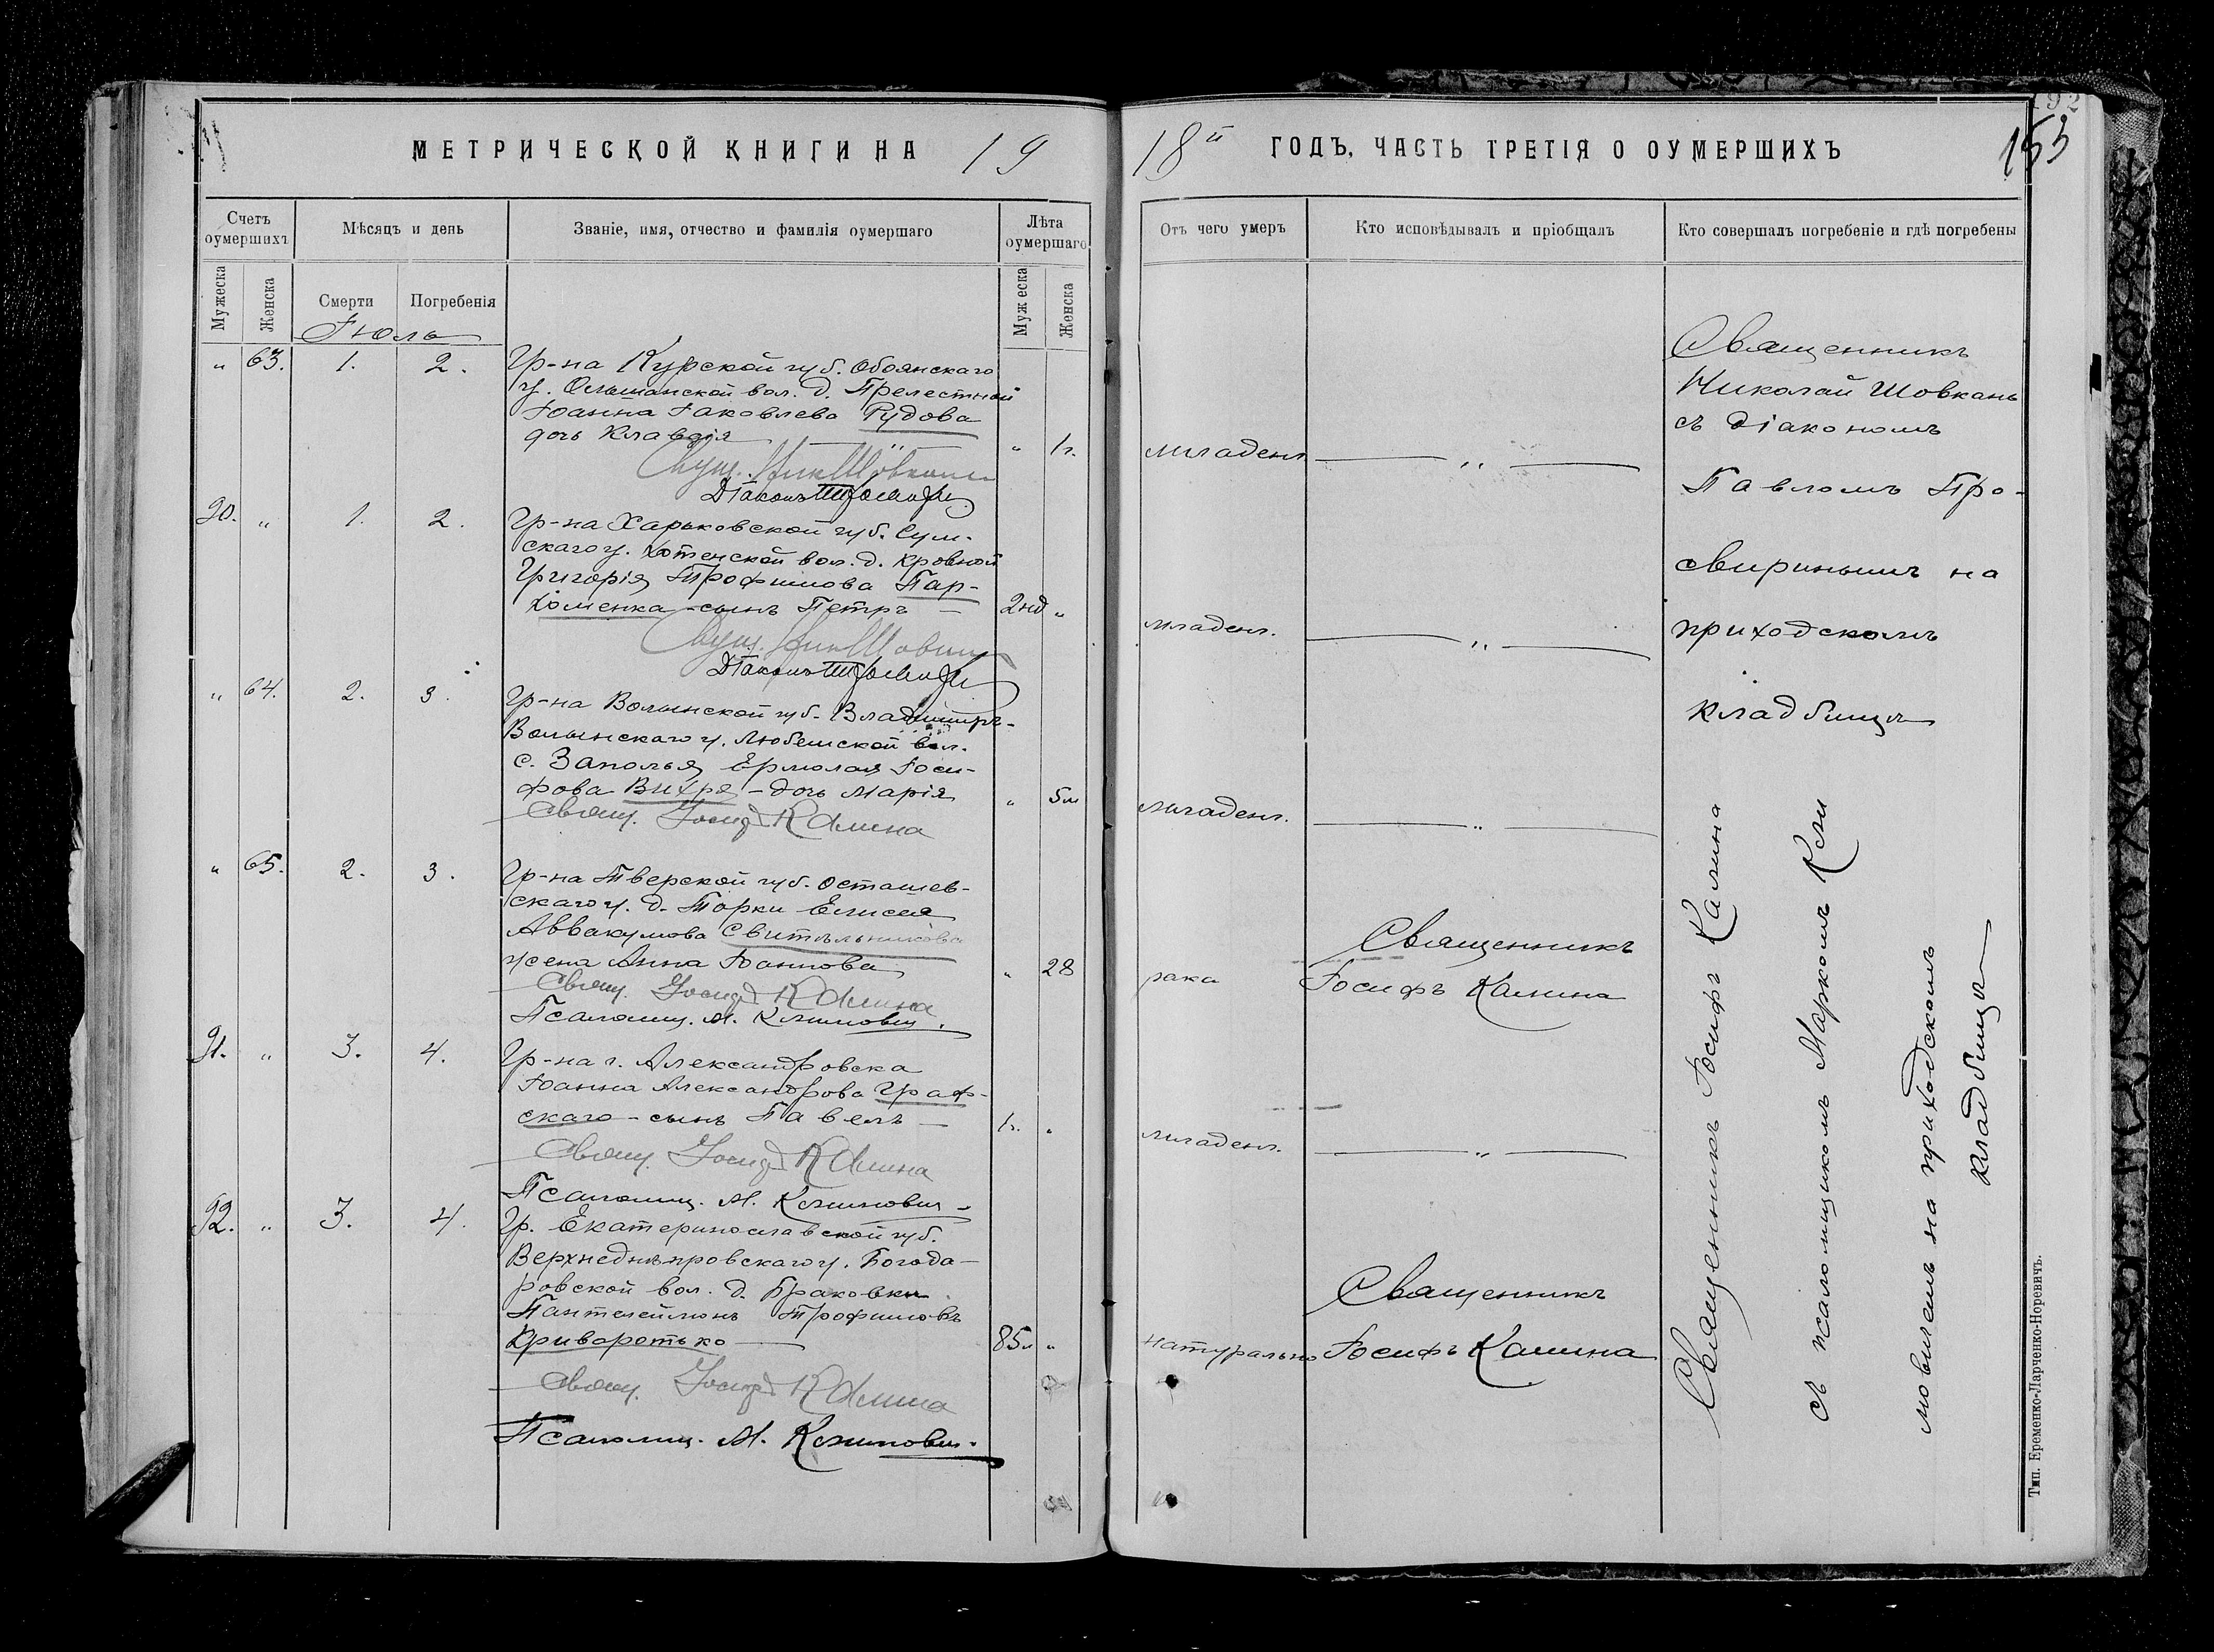 МЕТРИЧЕСКОЙ КНИГИ НА 19
18й ГОДЪ, ЧАСТЬ ТРЕТІЯ О ОУМЕРШИХЪ
153
Счетъ оумершихъ
Мѣсяцъ и день
Званіе, имя, отчество и фамилія оумершаго
Лѣта оумершаго
Отъ чего умеръ
Кто исповѣдывалъ и пріобщалъ
Кто совершалъ погребеніе и гдѣ погребены
Мужеска
Женска
Смерти
Погребенія
Муж еска
Женска
Іюль
" 63. 1. 2.
Гр-на Курской губ. Обоянскаго
у. Ольшанской вол. д. Прелестной
Іоанна Іаковлева Рудова
дочь Клавдія " 1г.
младенч. "
Свящ. Ник Шовкань
Діаконъ
90. " 1. 2.
Гр-на Харьковской губ. Сум-
скаго у. Хотенской вол. д. Кровной
Григорія Трофимова Пар-
хоменка - сынъ Петръ — 2нд "
младенч. "
Свящ. Ник Шовкань
Діаконъ
" 64. 2. 3.
Гр-на Волынской губ. Владиміръ-
Волынскаго у. Любешской вол.
с. Заполья Ермолая Іоси-
фова Вихря - дочь Марія " 5м
младенч. "
Свящ. Іосифъ Калина
" 65. 2. 3.
Гр-на Тверской губ. Осташев-
скаго у. д. Торки Елисея
Аввакумова Свитильникова
жена Анна Іоаннова " 28
рака
Священникъ
Іосифъ Калина
Свящ. Іосифъ Калина
Псаломщ. М. Климович.
91. " 3. 4.
Гр-на г. Александровска
Іоанна Александрова Граф-
скаго - сынъ Павелъ — 1г. "
младенч. "
Свящ. Іосифъ Калина
Псаломщ. М. Климович.
92. " 3. 4.
Гр. Екатеринославской губ.
Верхнеднѣпровскаго у. Богода-
ровской вол. д. Браковки
Пантелеймонъ Трофимовъ
Криворотько — 85л "
натурально
Священникъ
Іосифъ Калина
Свящ. Іосифъ Калина
Псаломщ. М. Климович.
Священникъ
Николай Шовкань
съ діакономъ
Павломъ Про-
свиринымъ на
приходскомъ
кладбищѣ
Священникъ Іосифъ Калина
съ псаломщикомъ Маркомъ Кли
мовичемъ на приходскомъ
кладбищѣ
Тип. Еременко-Ларченко-Норевичъ.